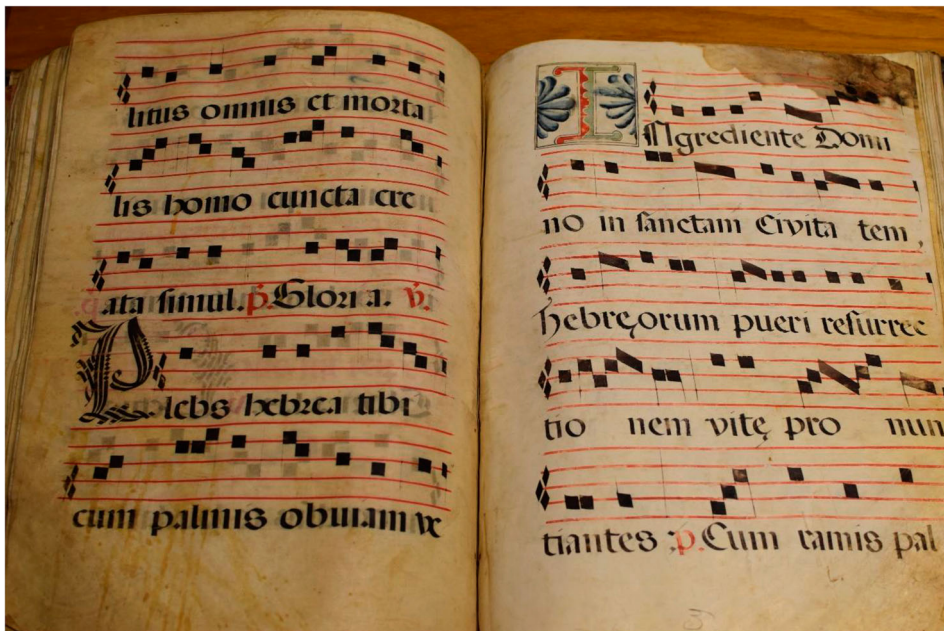 litus omnis et morta
lis homo cuncta cre
ata simul. p. Gloria. v.
Plebs hebrea tibi
cum palmis obuiam ve
INgrediente Domi
no in sanctam Civita tem,
hebręorum pueri resurrec
tio nem vitę pro nun
tiantes : p. Cum ramis pal